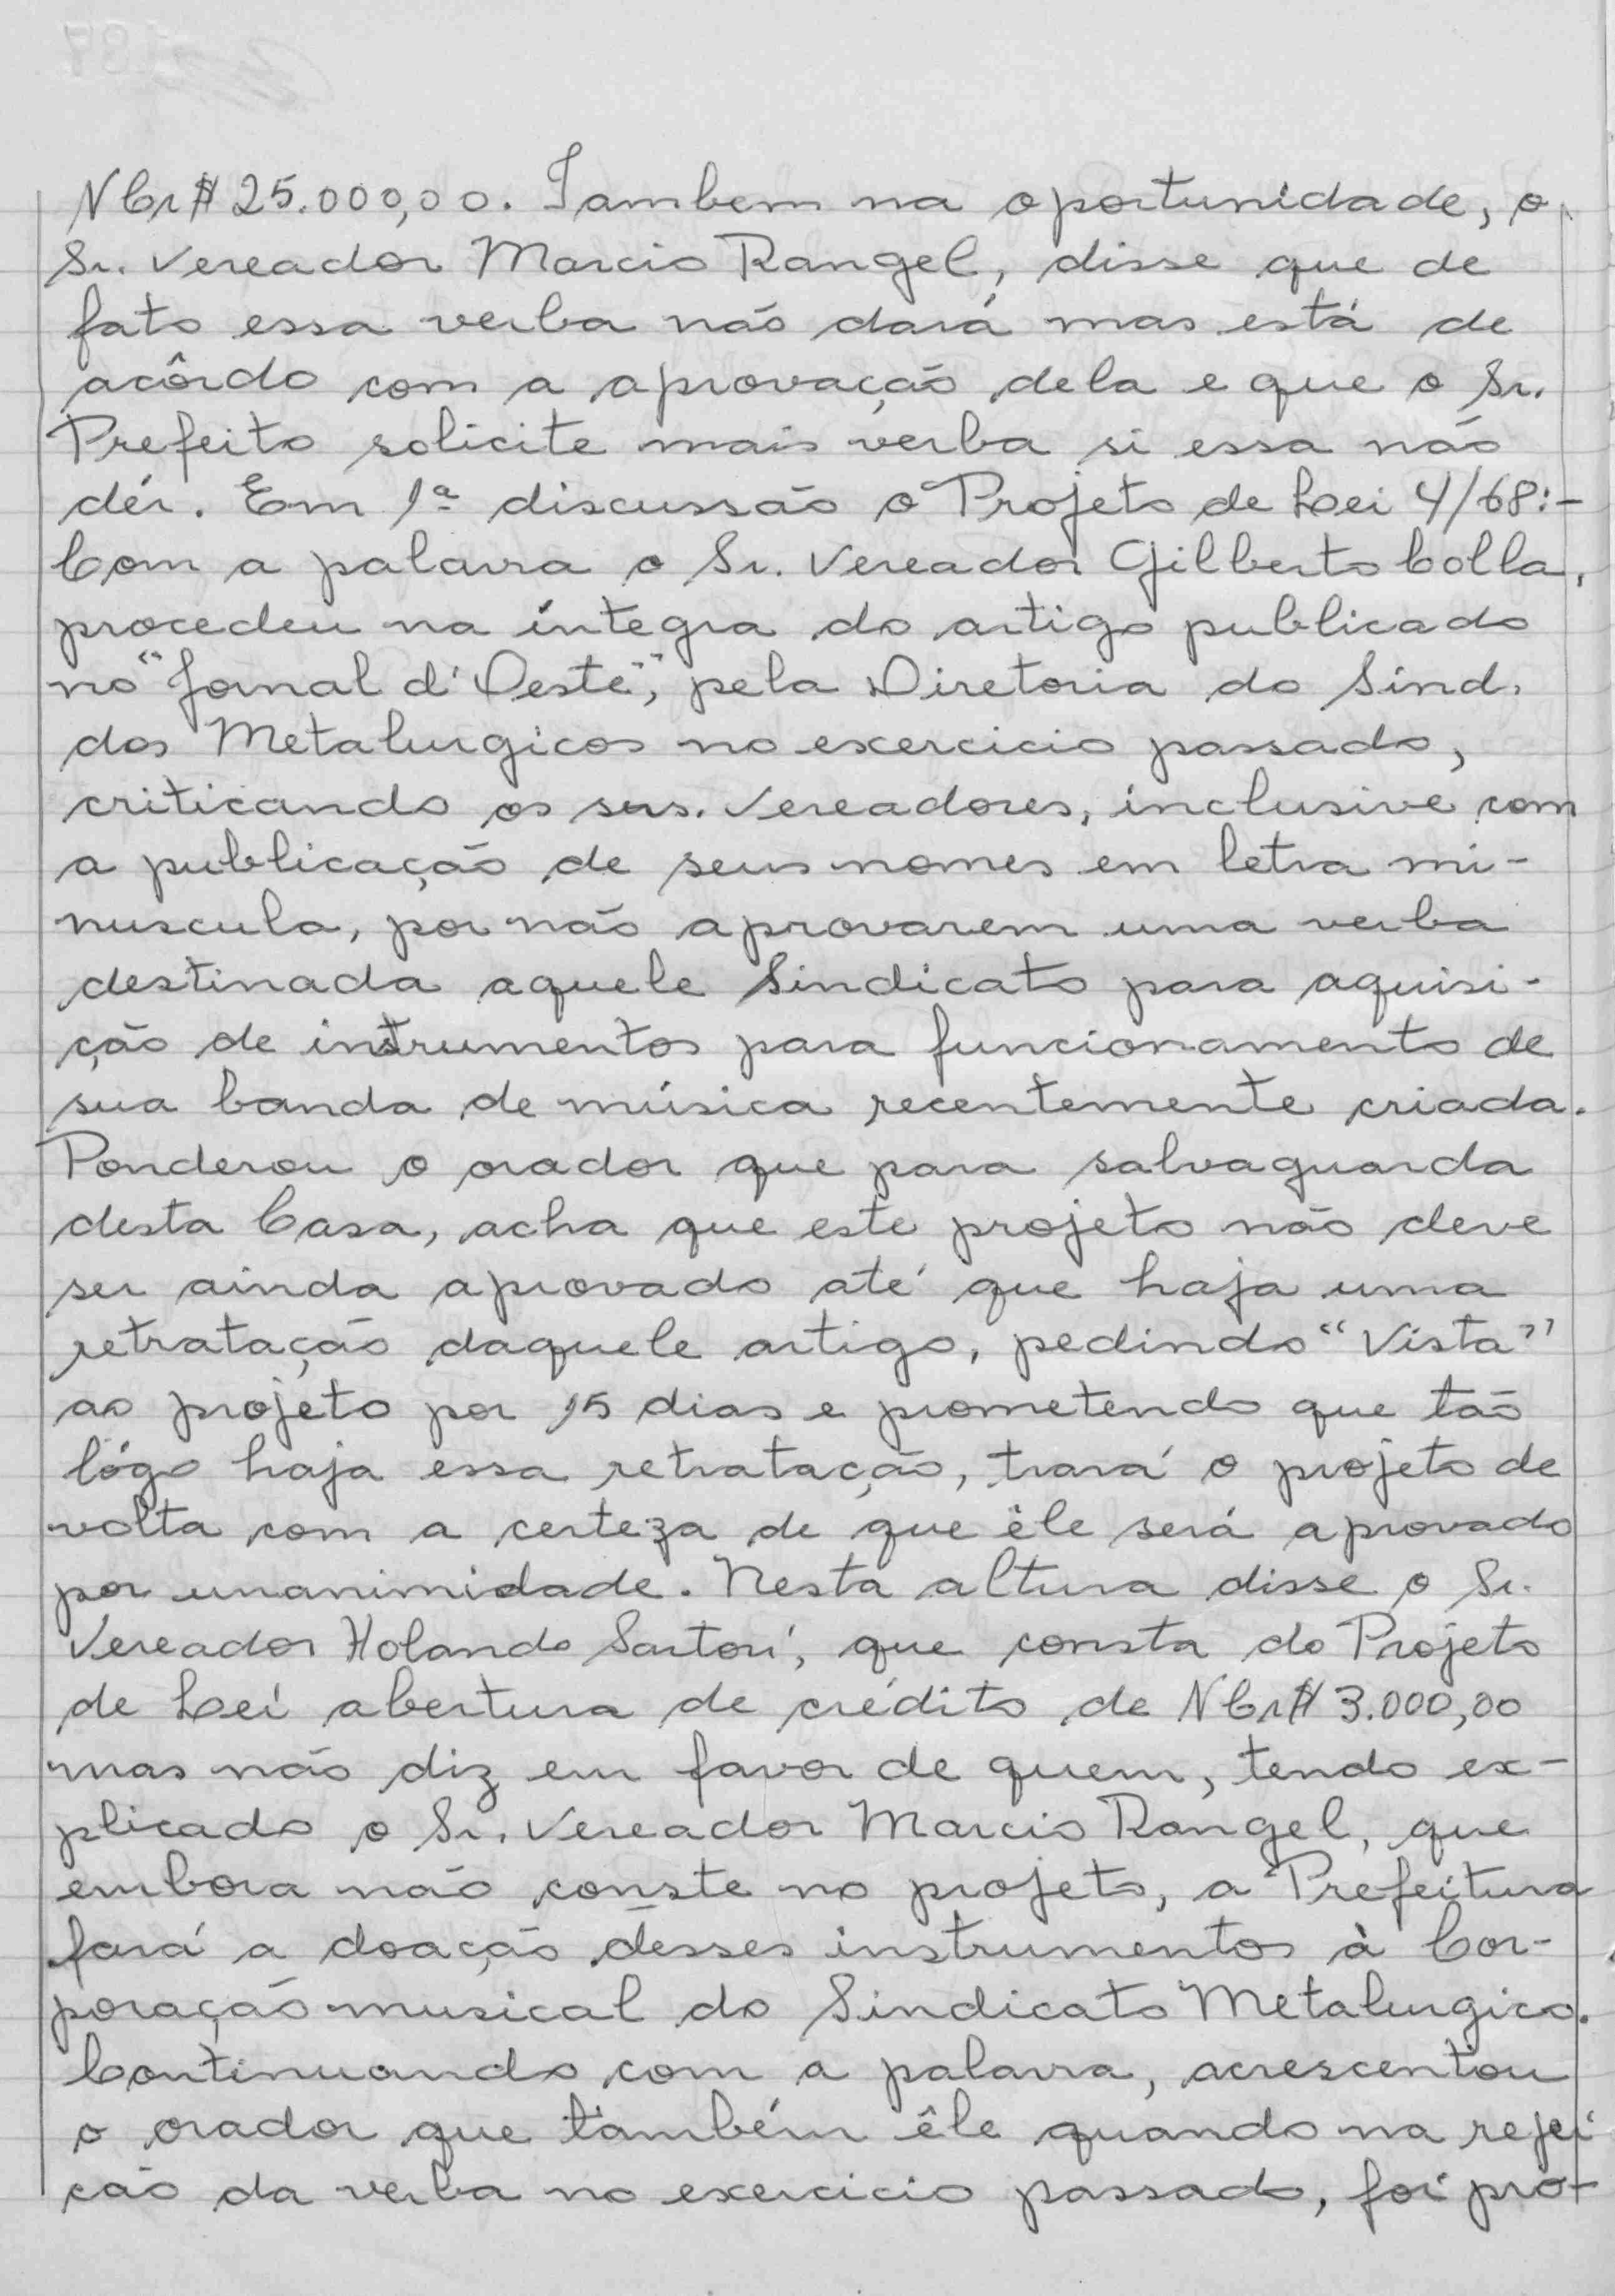 NCr$ 25.000,00. Tambem na oportunidade, o
Sr. Vereador Marcio Rangel, disse que de
fato essa verba não dará mas está de
acôrdo com a aprovação dela e que o Sr.
Prefeito solicite mais verba si essa não
dér. Em 1ª discussão o Projeto de Lei 4/68:-
Com a palavra o Sr. Vereador Gilberto Colla,
procedeu na íntegra do artigo publicado
no "Jornal d'Oeste", pela Diretoria do Sind.
dos Metalurgicos no exercicio passado,
criticando os srs. Vereadores, inclusive com
a publicação de seus nomes em letra mi-
nuscula, por não aprovarem uma verba
destinada aquele Sindicato para aquisi-
ção de instrumentos para funcionamento de
sua banda de música recentemente criada.
Ponderou o orador que para salvaguarda
desta Casa, acha que este projeto não deve
ser ainda aprovado até que haja uma
retratação daquele artigo, pedindo "Vista"
ao projeto por 15 dias e prometendo que tão
lógo haja essa retratação, trará o projeto de
volta com a certeza de que êle será aprovado
por unanimidade. Nesta altura disse o Sr.
Vereador Holando Sartori, que consta do Projeto
de Lei abertura de crédito de NCr$ 3.000,00
mas não diz em favor de quem, tendo ex-
plicado o Sr. Vereador Marcio Rangel, que
embora não conste no projeto, a Prefeitura
fará a doação desses instrumentos à Cor-
poração musical do Sindicato Metalurgico.
Continuando com a palavra, acrescentou
o orador que também êle quando na rejei
ção da verba no exercicio passado, foi pro-